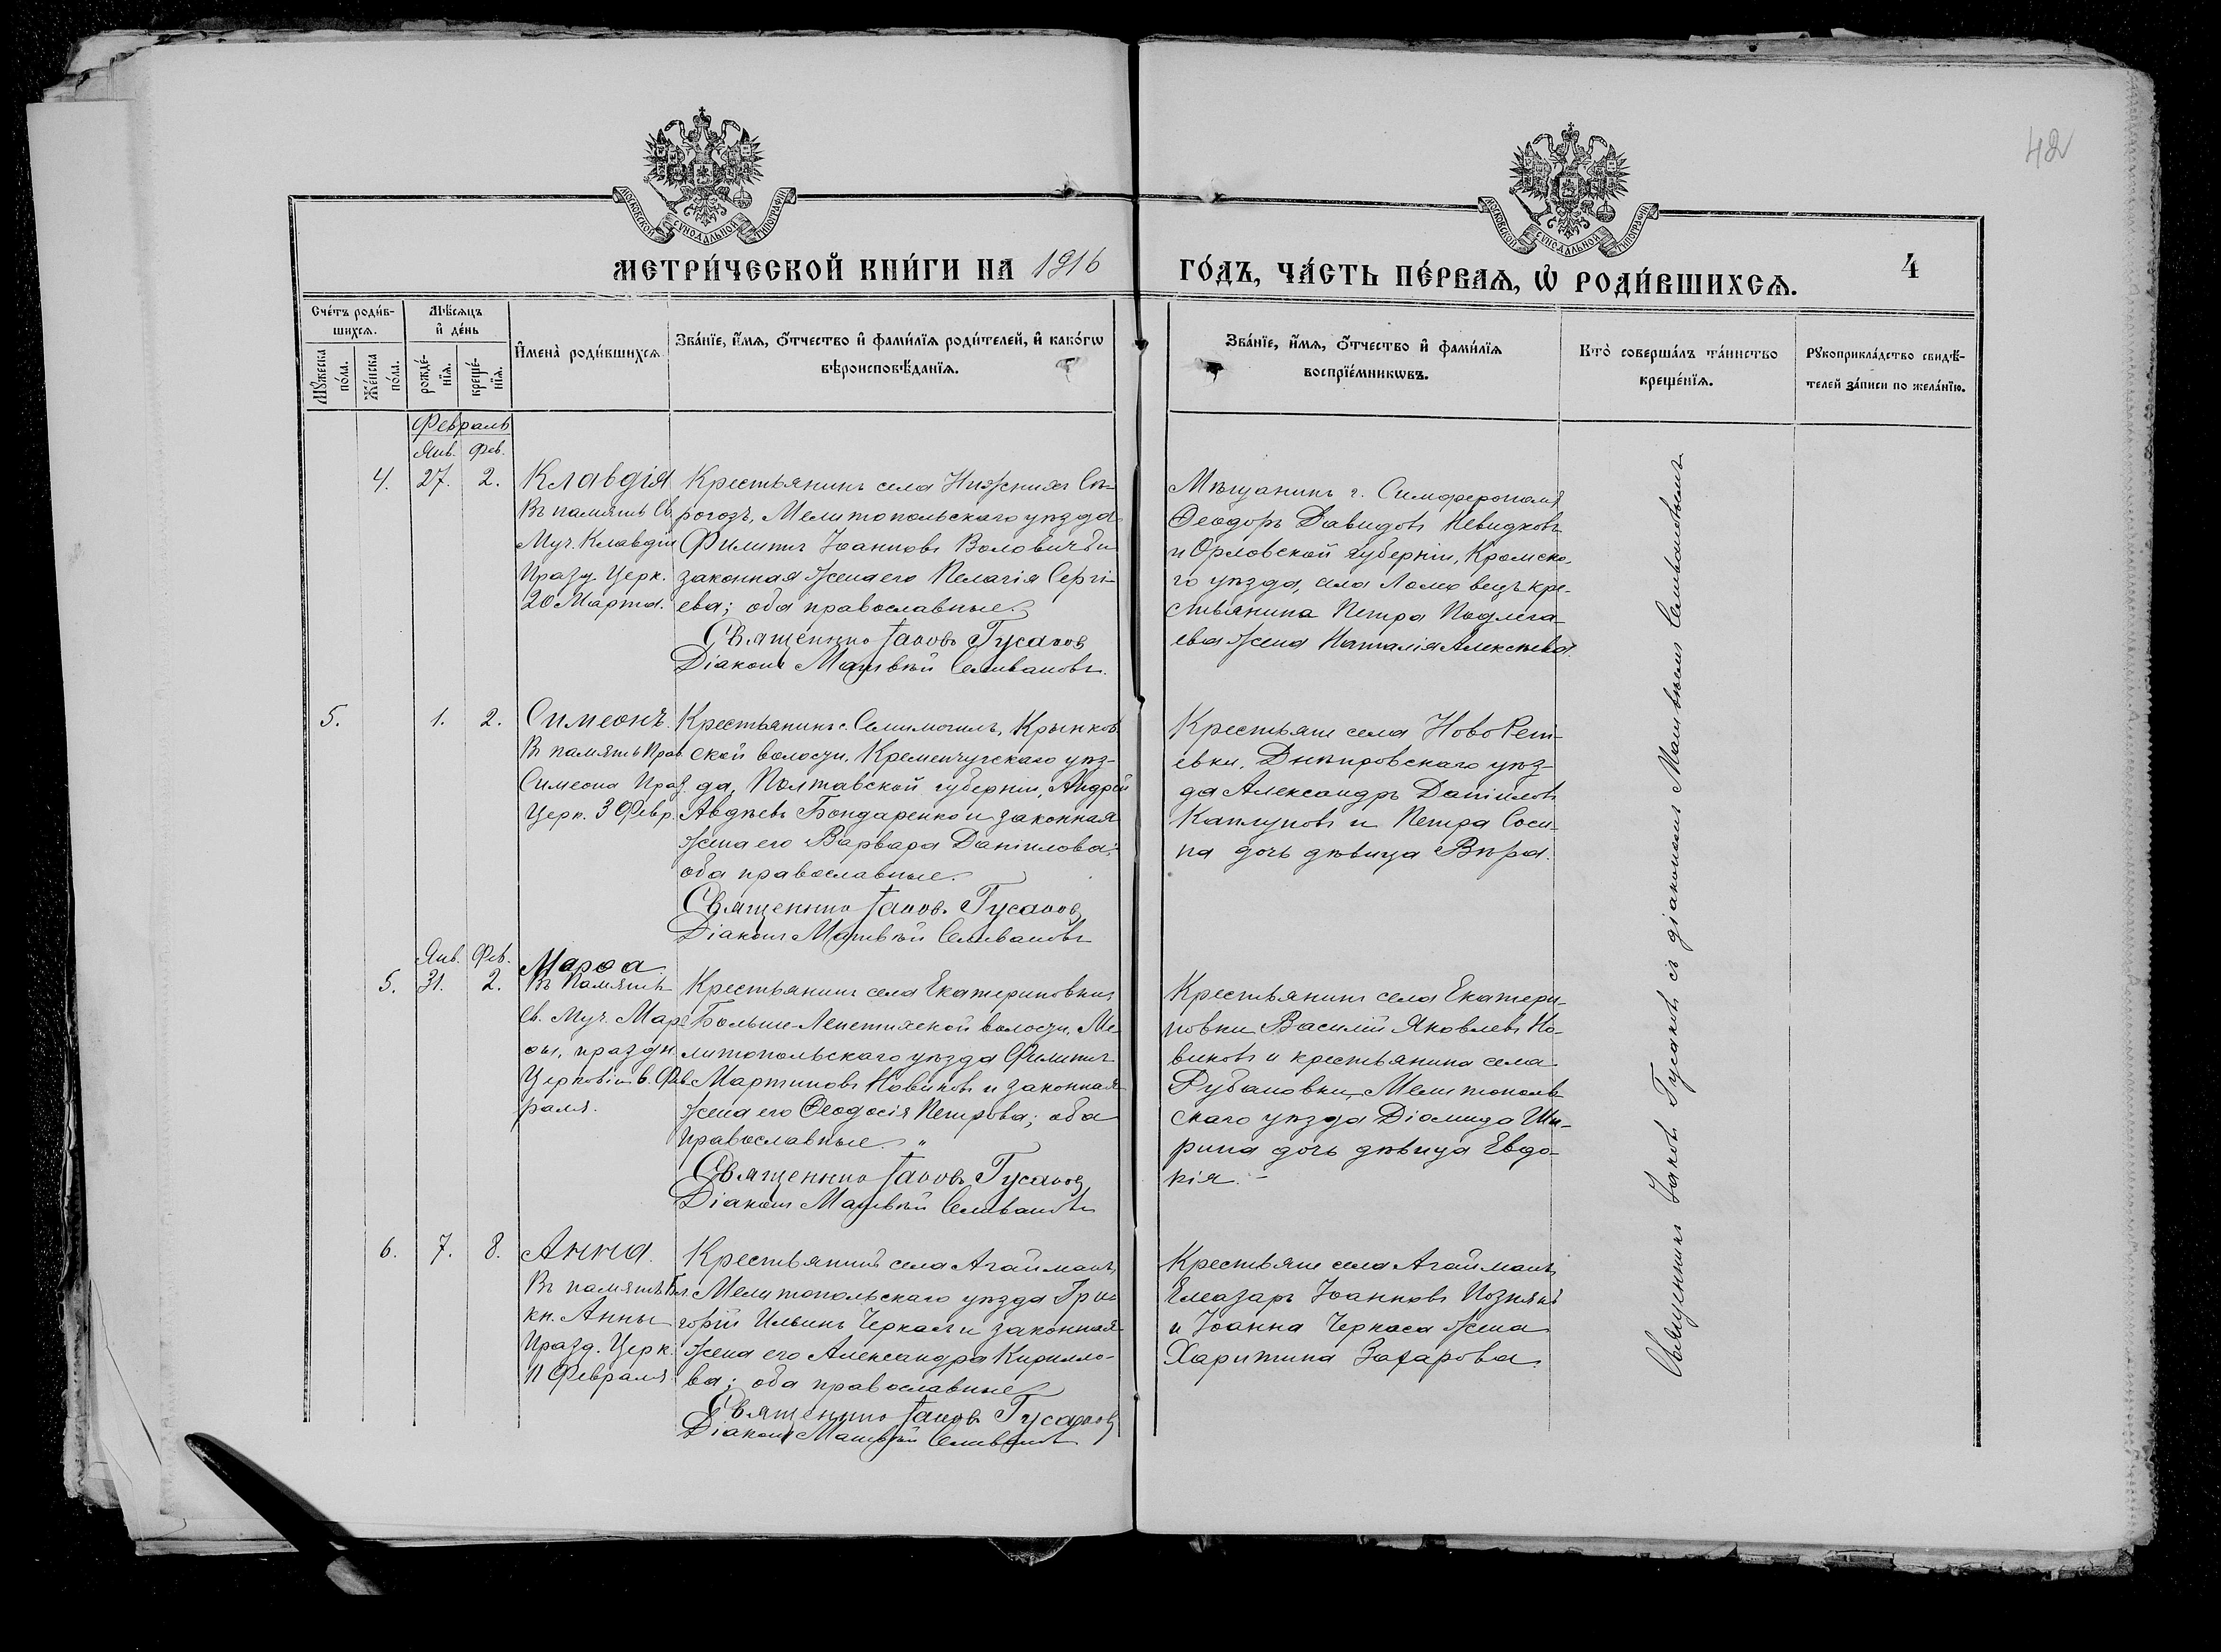 42
МОСКОВСКОЙ СѴНОДАЛЬНОЙ ТИПОГРАФІИ
МОСКОВСКОЙ СѴНОДАЛЬНОЙ ТИПОГРАФІИ
МЕТРИ́ЧЕСКОЙ КНИ́ГИ НА 1916
ГО́ДЪ, ЧА́СТЬ ПЕ́РВАѦ, Ѡ҆ РОДИ́ВШИХСѦ.
4
Сче́тъ роди́в-
шихсѧ.
Мꙋ́жеска
по́ла.
Же́нска
по́ла.
Мѣ́сѧцъ
и҆ де́нь
рожде́-
нїѧ.
креще́-
нїѧ.
И҆мена̀ роди́вшихсѧ
Зва́нїе, и҆́мѧ, ѻ҆́тчество и҆ фами́лїѧ роди́телей, и҆ како́гѡ
вѣроисповѣ́данїѧ.
Зва́нїе, и҆́мѧ, ѻ҆́тчество и҆ фами́лїѧ
воспрїе́мникѡвъ.
Кто̀ соверша́лъ та́инство
креще́нїѧ.
Рꙋкоприкла́дство свидѣ́-
телей за́писи по жела́нїю.
Февраль
Янв. Фев.
4. 27. 2.
Клавдія
Въ память Св.
Муч. Клавдіи
Празд. Церк.
20 Марта.
Крестьянинъ села Нижнихъ Сѣ-
рогозъ, Мелитопольскаго уѣзда
Филиппъ Іоанновъ Воловичъ и
законная жена его Пелагія Сергі-
ева; оба православные.
Священникъ Іаковъ Гусаковъ
Діаконъ Матвѣй Селивановъ.
Мѣщанинъ г. Симферополя
Ѳеодоръ Давидовъ Невидковъ
и Орловской губерніи, Кромска-
го уѣзда, села Ломовецъ кре-
стьянина Петра Подлега-
ева жена Наталія Алексѣева.
5. 1. 2.
Симеонъ.
Въ память Прав.
Симеона Празд.
Церк. 3 Февр.
Крестьянинъ с. Семимогилъ, Крынков-
ской волости, Кременчугскаго уѣз-
да, Полтавской губерніи, Андрей
Авдѣевъ Бондаренко и законная
жена его Варвара Даніилова;
оба православные.
Священникъ Іаковъ Гусаковъ
Діаконъ Матвѣй Селивановъ
Крестьяне села НовоРеп-
евки, Днѣпровскаго уѣз-
да Александръ Даніиловъ
Каплуновъ и Петра Соси-
на дочь дѣвица Вѣра.
Янв. Фев.
5. 31. 2.
Марѳа.
Въ память
Св. Муч. Мар-
ѳы, праздн.
Церковію 6. Фев-
раля.
Крестьянинъ села Екатериновки,
Больше-Лепетихской волости, Ме-
литопольскаго уѣзда Филиппъ
Мартиновъ Новиковъ и законная
жена его Ѳеодосія Петрова; оба
православные.
Священникъ Іаковъ Гусаковъ
Діаконъ Матвѣй Селивановъ
Крестьянинъ села Екатери-
новки Василій Яковлевъ Но-
виковъ и крестьянина села
Рубановки, Мелитополь-
скаго уѣзда Діомида Ши-
рина дочь дѣвица Евдо-
кія. –
6. 7. 8.
Анна.
Въ память Бл.
кн. Анны
Празд. Церк.
11 Февраля
Крестьянинъ села Агайманъ,
Мелитопольскаго уѣзда Гри-
горій Ильинъ Черкасъ и законная
жена его Александра Кирилло-
ва; оба православные
Священникъ Іаковъ Гусаковъ
Діаконъ Матвѣй Селивановъ
Крестьяне села Агайманъ,
Елеазаръ Іоанновъ Познякъ
и Іоанна Черкаса жена
Харитина Захарова.
Священникъ Іаковъ Гусаковъ съ діакономъ Матвѣемъ Селивановымъ